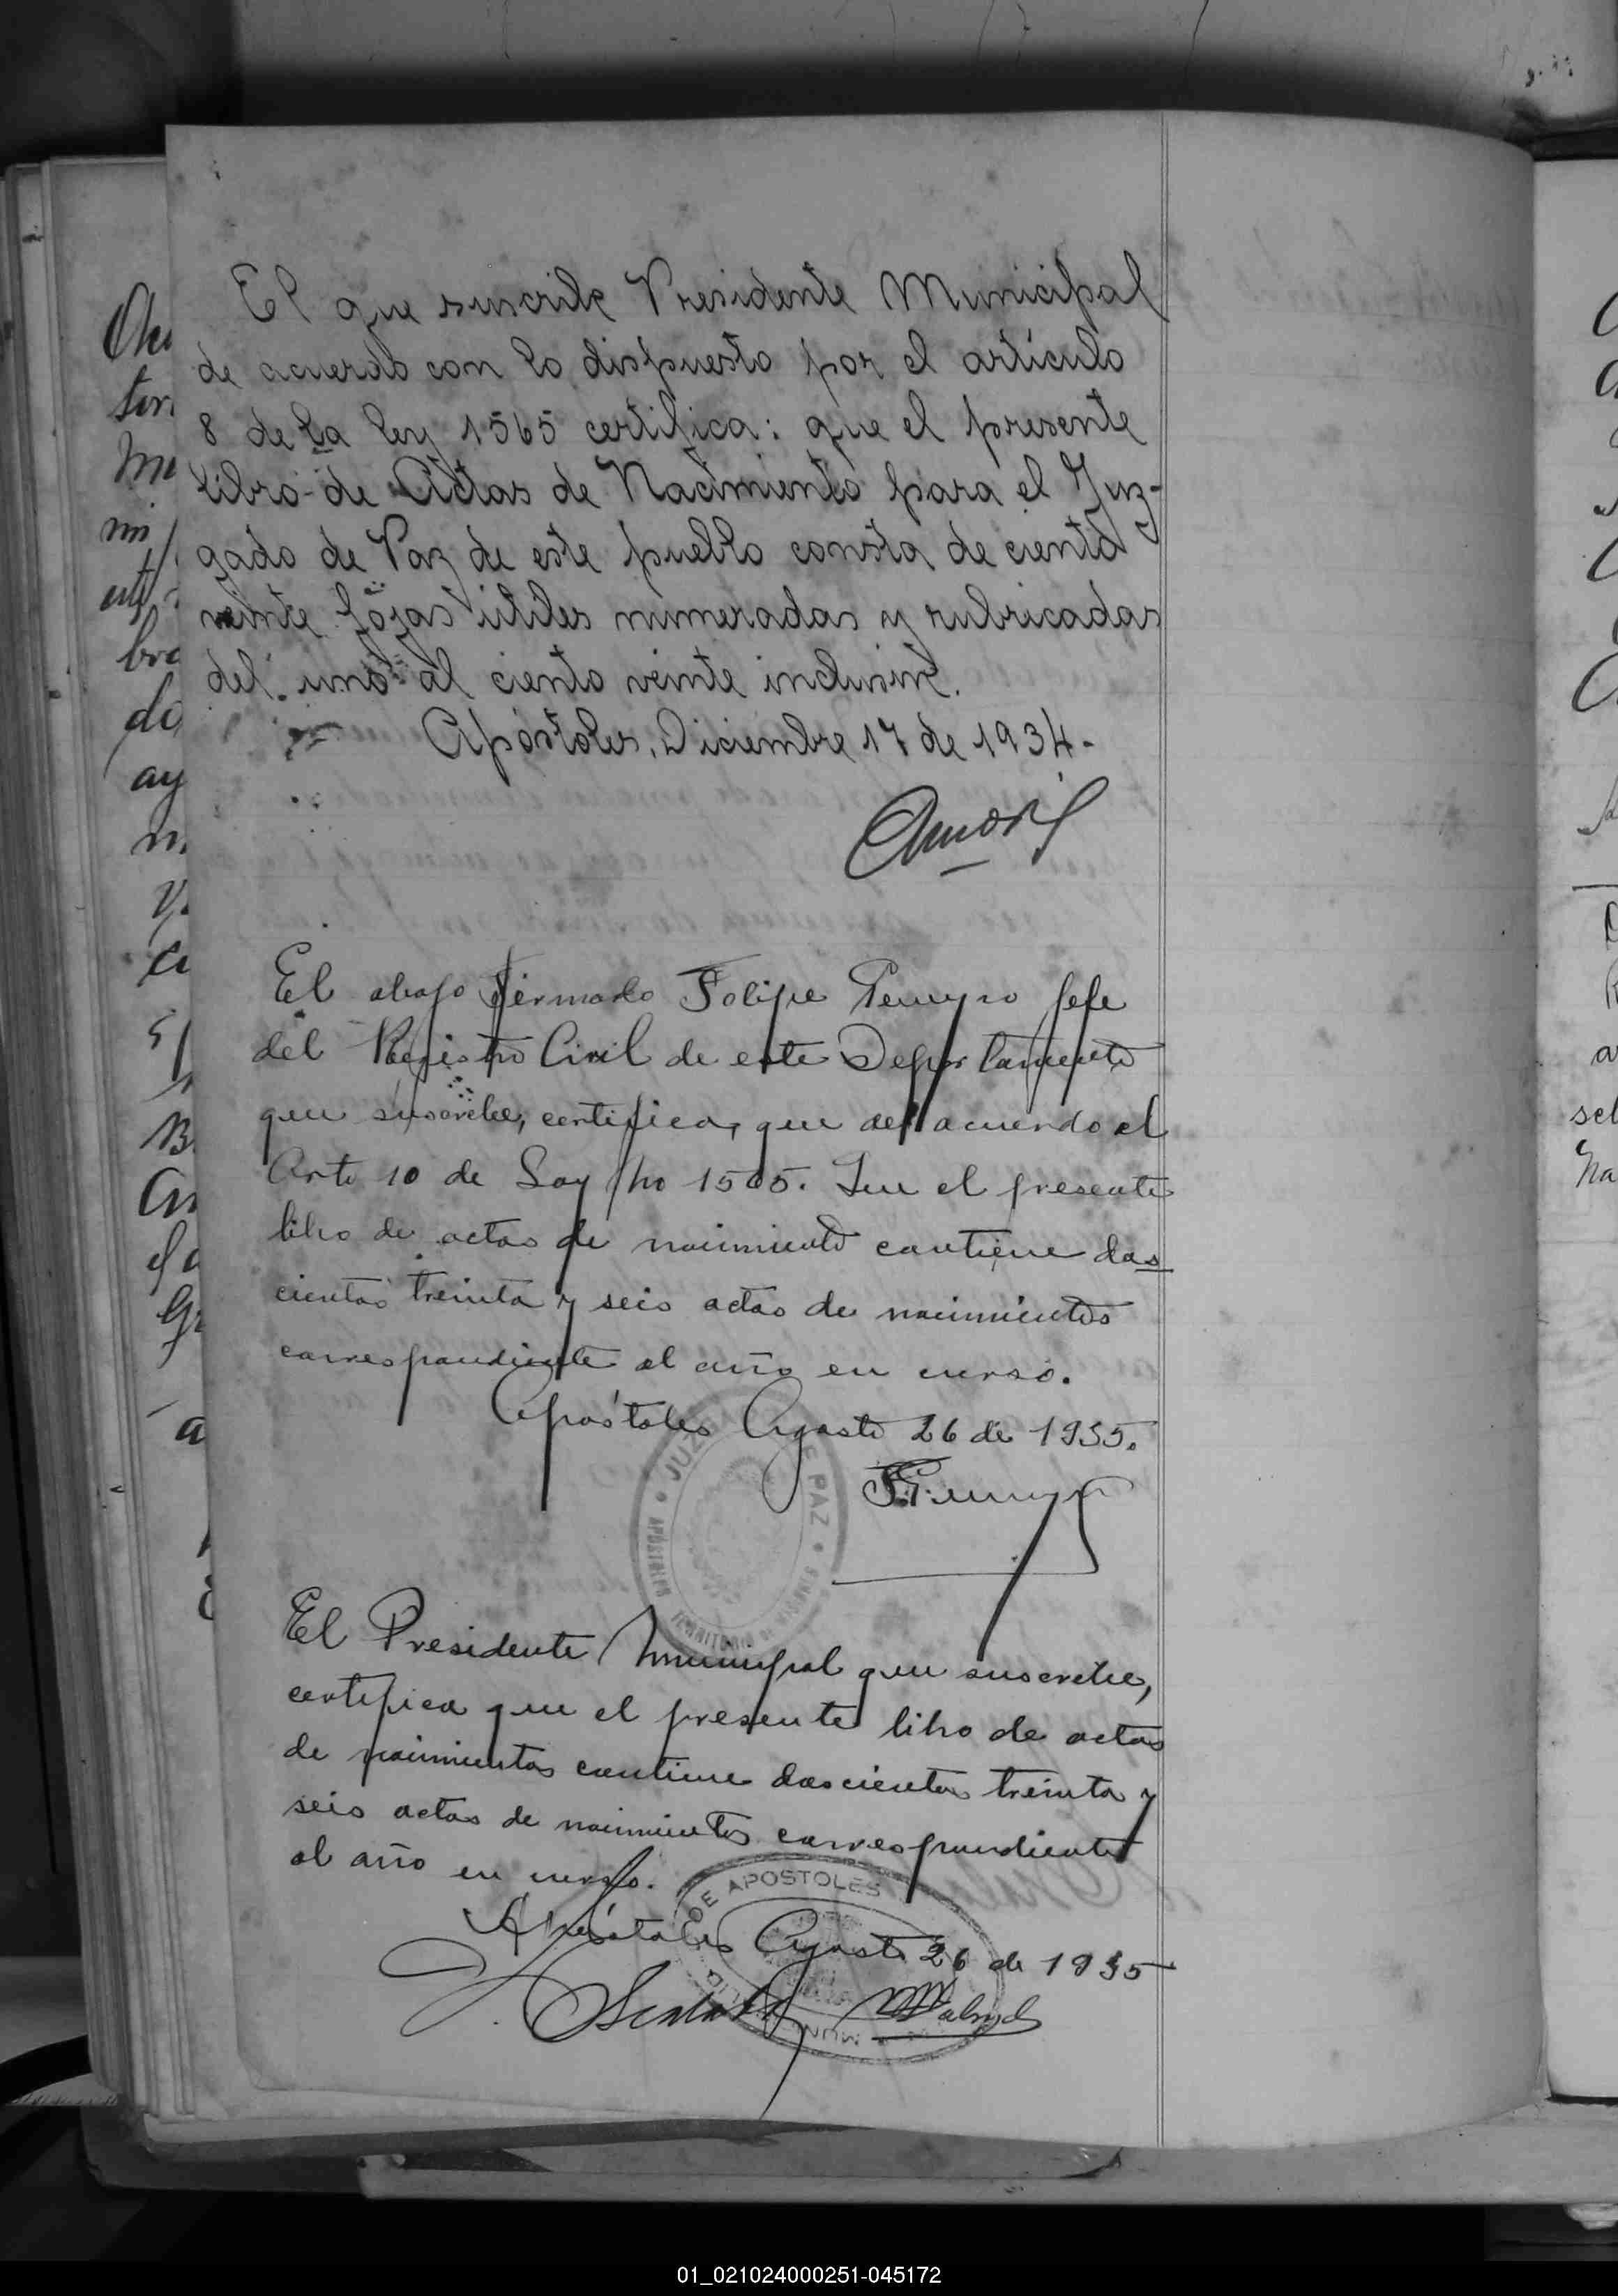 El que suscribe Presidente Municipal
de acuerdo con lo dispuesto por el artículo
8 de la ley 1565 certifica: que el presente
libro de Actas de Nacimiento para el Juz-
gado de Paz de este pueblo consta de ciento
veinte fojas útiles numeradas y rubricadas
del uno al ciento veinte inclusive.
Apóstoles, Diciembre 17 de 1934.-
El abajo firmado Felipe jefe
del Registro Civil de este Departamento
que suscribe, certifica, que de acuerdo al
Arto 10 de Ley No 1565. Que el presente
libro de actas de nacimiento contiene dos
cientos treinta y seis actas de nacimientos
correspondiente al año en curso.
Apóstoles Agosto 26 de 1935.
JUZ E PAZ
APÓSTOLES TERRITORIO DE MISIONES
El Presidente Municipal que suscribe,
certifica que el presente libro de actas
de nacimientos contiene doscientos treinta y
seis actas de nacimientos correspondiente
al año en curso.
DE APOSTOLES
Apóstoles Agosto 26 de 1935
01_021024000251-045172